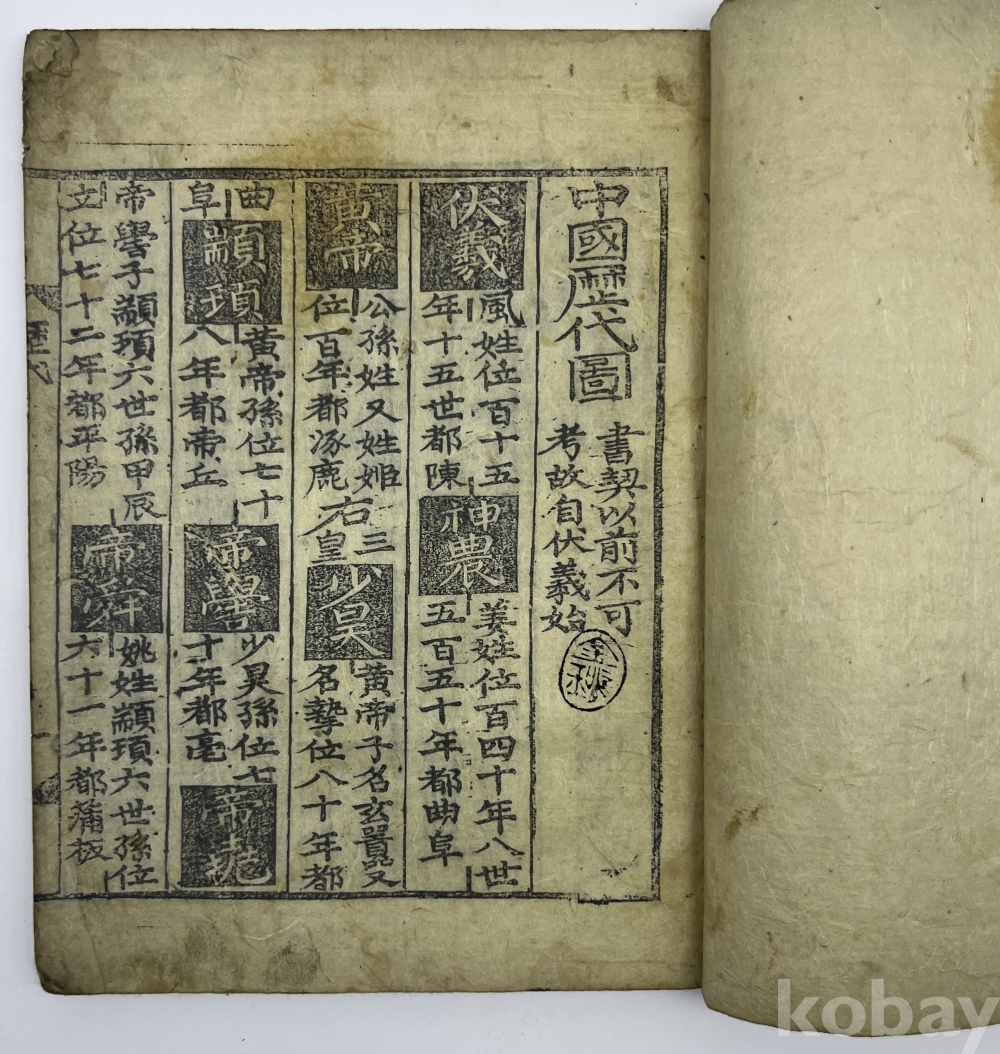 中國歴代圖
書契以前不可
考故自伏羲始
伏羲
風姓位百十五
年十五世都陳
神農
姜姓位百四十年八世
五百五十年都曲阜
黃帝
公孫姓又姓姬
位百年都涿鹿
右三
皇
少昊
黃帝子名玄囂又
名摯位八十年都
曲
阜
顓頊
黃帝孫位七十
八年都帝丘
帝嚳
少昊孫位七
十年都亳
帝堯
帝嚳子顓頊六世孫甲辰
立位七十二年都平陽
帝舜
姚姓顓頊六世孫位
六十一年都蒲板
歴代
一
kobay